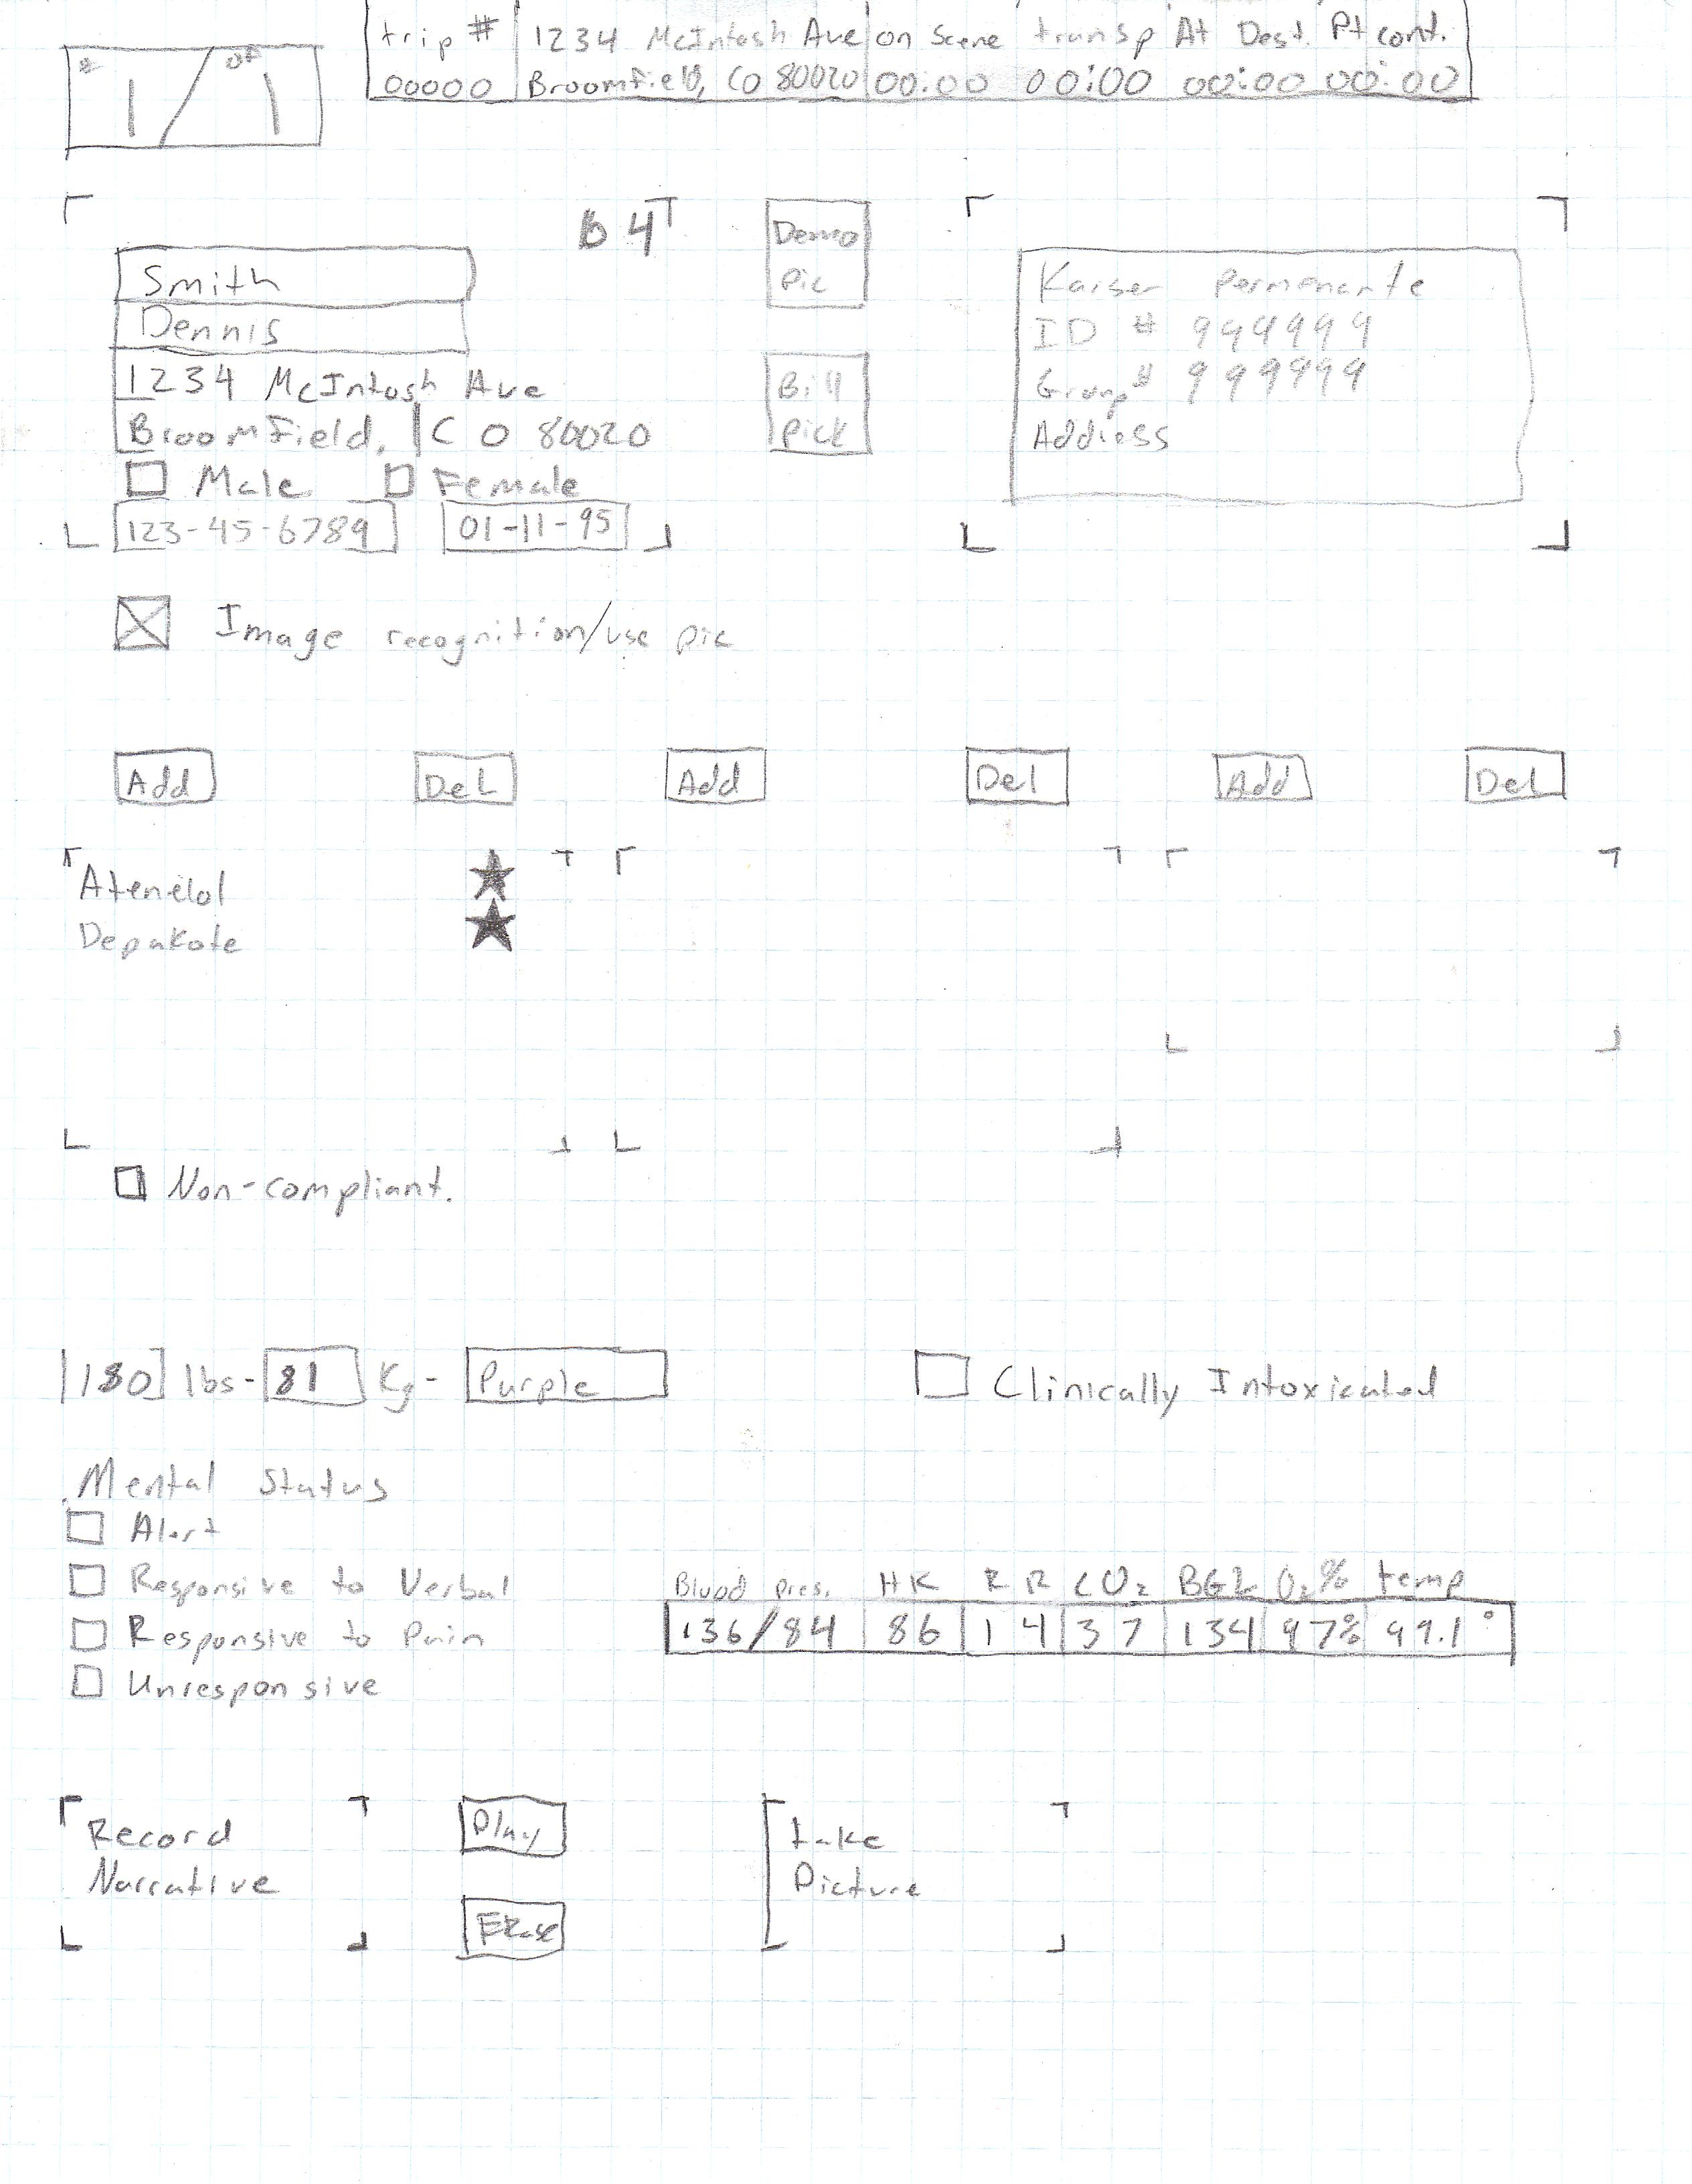 # 1 / of 1
trip # 1234 McIntosh Ave on Scene transp At Dest. Pt cont.
00000 Broomfield, CO 80020 00:00 00:00 00:00 00:00
Smith
Dennis
1234 McIntosh Ave
Broomfield, CO 80020
Male Female
123-45-6789 01-11-95
Demo
Pic
Bill
Pick
Kaiser Permenante
ID # 999999
Group # 999999
Address
Image recognition/use pic
Add Del Add Del Add Del
Atenelol
Depakote
Non-compliant.
180 lbs- 81 Kg- Purple
Clinically Intoxicated
Mental Status
Alert
Responsive to Verbal
Responsive to Pain
Unresponsive
Blood pres. HR RR CO2 BGL O2% temp
136/84 86 14 37 134 97% 99.1°
Record
Narrative
Play
Erase
take
Picture